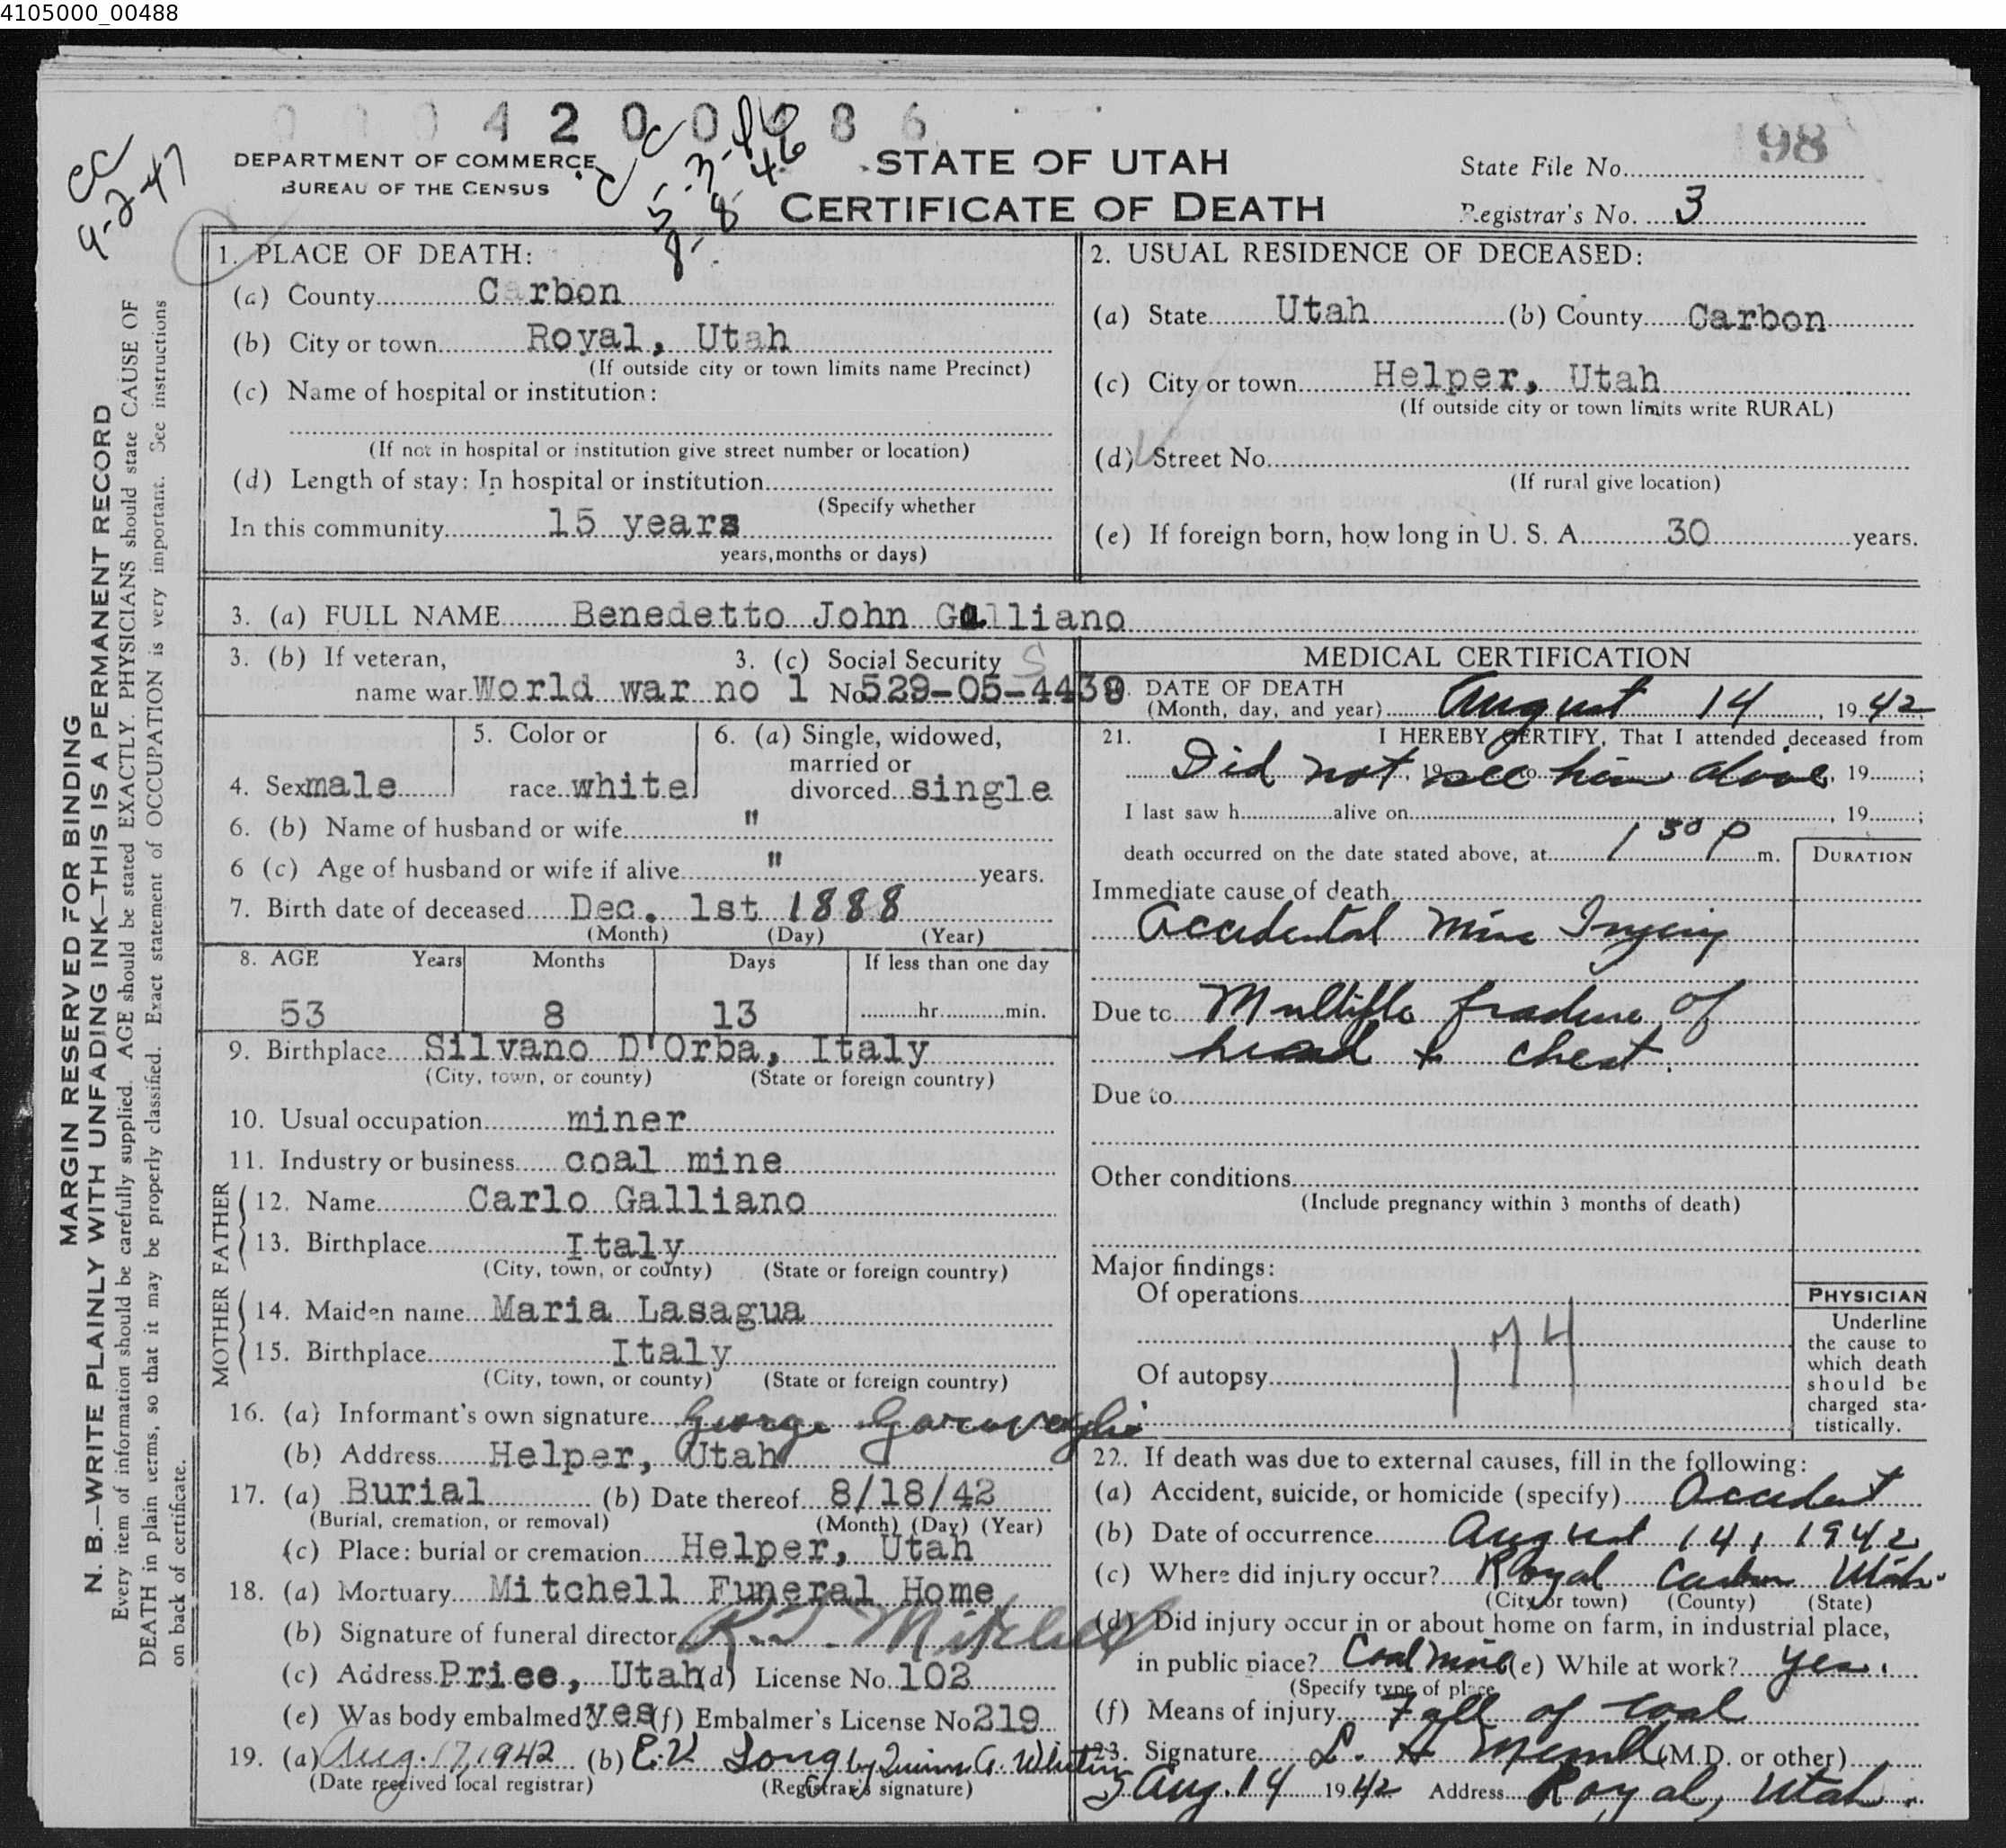 4105000_00488
4 2 0 0 8 6
198
CC
4-2-47
CC
5-3-46
8-8-46
DEPARTMENT OF COMMERCE
BUREAU OF THE CENSUS
STATE OF UTAH
CERTIFICATE OF DEATH
State File No.
Registrar's No. 3
MARGIN RESERVED FOR BINDING
N. B.—WRITE PLAINLY WITH UNFADING INK—THIS IS A PERMANENT RECORD
Every item of information should be carefully supplied. AGE should be stated EXACTLY. PHYSICIANS should state CAUSE OF
DEATH in plain terms, so that it may be properly classified. Exact statement of OCCUPATION is very important. See instructions
on back of certificate.
1. PLACE OF DEATH:
(a) County Carbon
(b) City or town Royal, Utah
(If outside city or town limits name Precinct)
(c) Name of hospital or institution:
(If not in hospital or institution give street number or location)
(d) Length of stay: In hospital or institution
(Specify whether
In this community 15 years
years, months or days)
2. USUAL RESIDENCE OF DECEASED:
(a) State Utah (b) County Carbon
(c) City or town Helper, Utah
(If outside city or town limits write RURAL)
(d) Street No.
(If rural give location)
(e) If foreign born, how long in U. S. A. 30 years.
3. (a) FULL NAME Benedetto John Galliano
3. (b) If veteran, 3. (c) Social Security S
name war World war no 1 No 529-05-4439
4. Sex male
5. Color or
race white
6. (a) Single, widowed,
married or
divorced single
6. (b) Name of husband or wife "
6 (c) Age of husband or wife if alive " years.
7. Birth date of deceased Dec. 1st 1888
(Month) (Day) (Year)
8. AGE Years Months Days If less than one day
53 8 13 hr. min.
9. Birthplace Silvano D'Orba, Italy
(City, town, or county) (State or foreign country)
10. Usual occupation miner
11. Industry or business coal mine
FATHER
12. Name Carlo Galliano
13. Birthplace Italy
(City, town, or county) (State or foreign country)
MOTHER
14. Maiden name Maria Lasagua
15. Birthplace Italy
(City, town, or county) (State or foreign country)
16. (a) Informant's own signature George
(b) Address Helper, Utah
17. (a) Burial (b) Date thereof 8/18/42
(Burial, cremation, or removal) (Month) (Day) (Year)
(c) Place: burial or cremation Helper, Utah
18. (a) Mortuary Mitchell Funeral Home
(b) Signature of funeral director Mitchell
(c) Address Price, Utah (d) License No. 102
(e) Was body embalmed yes (f) Embalmer's License No 219
19. (a) Aug. 17, 1942 (b) E.V. Long by
(Date received local registrar) (Registrar's signature)
MEDICAL CERTIFICATION
DATE OF DEATH
(Month, day, and year) August 14, 1942
21. I HEREBY CERTIFY, That I attended deceased from
Did not, 19 see to him alive, 19 ;
I last saw h alive on , 19 ;
death occurred on the date stated above, at 1 30 P m.
DURATION
Immediate cause of death
Accidental Mine Injury
Due to Multiple fracture of
head + chest.
Due to
Other conditions
(Include pregnancy within 3 months of death)
Major findings:
Of operations
174
Of autopsy
PHYSICIAN
Underline
the cause to
which death
should be
charged sta-
tistically.
22. If death was due to external causes, fill in the following:
(a) Accident, suicide, or homicide (specify) Accident
(b) Date of occurrence August 14, 1942
(c) Where did injury occur? Royal Carbon Utah.
(City or town) (County) (State)
(d) Did injury occur in or about home on farm, in industrial place,
in public place? Coal mine (e) While at work? yes.
(Specify type of place
(f) Means of injury Fall of coal
23. Signature L. H (M.D. or other)
Aug. 14 1942 Address Royal, Utah.